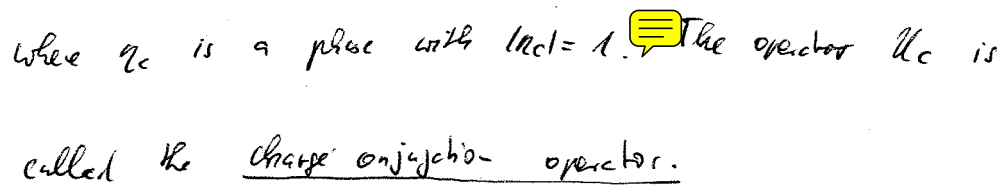 where η_c is a phase with |η_c| = 1. The operator U_c is
called the charge conjugation operator.